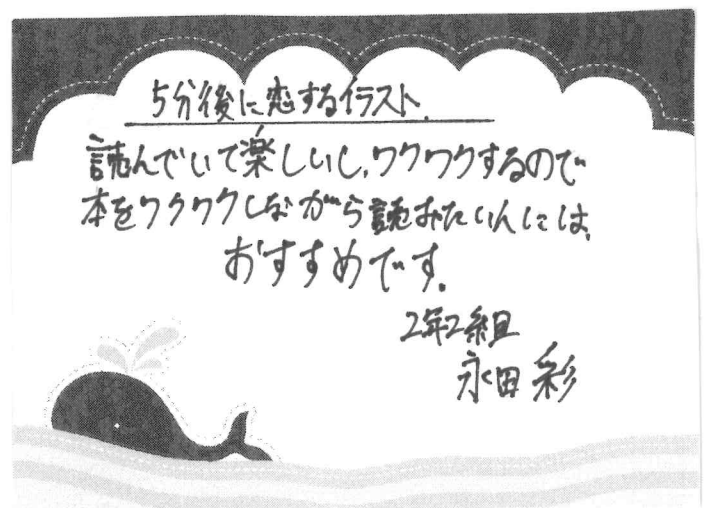 5分後に恋するイラスト.
読んでいて楽しいし,ワクワクするので
本をワクワクしながら読みたい人には,
おすすめです.
2年2組
永田 彩